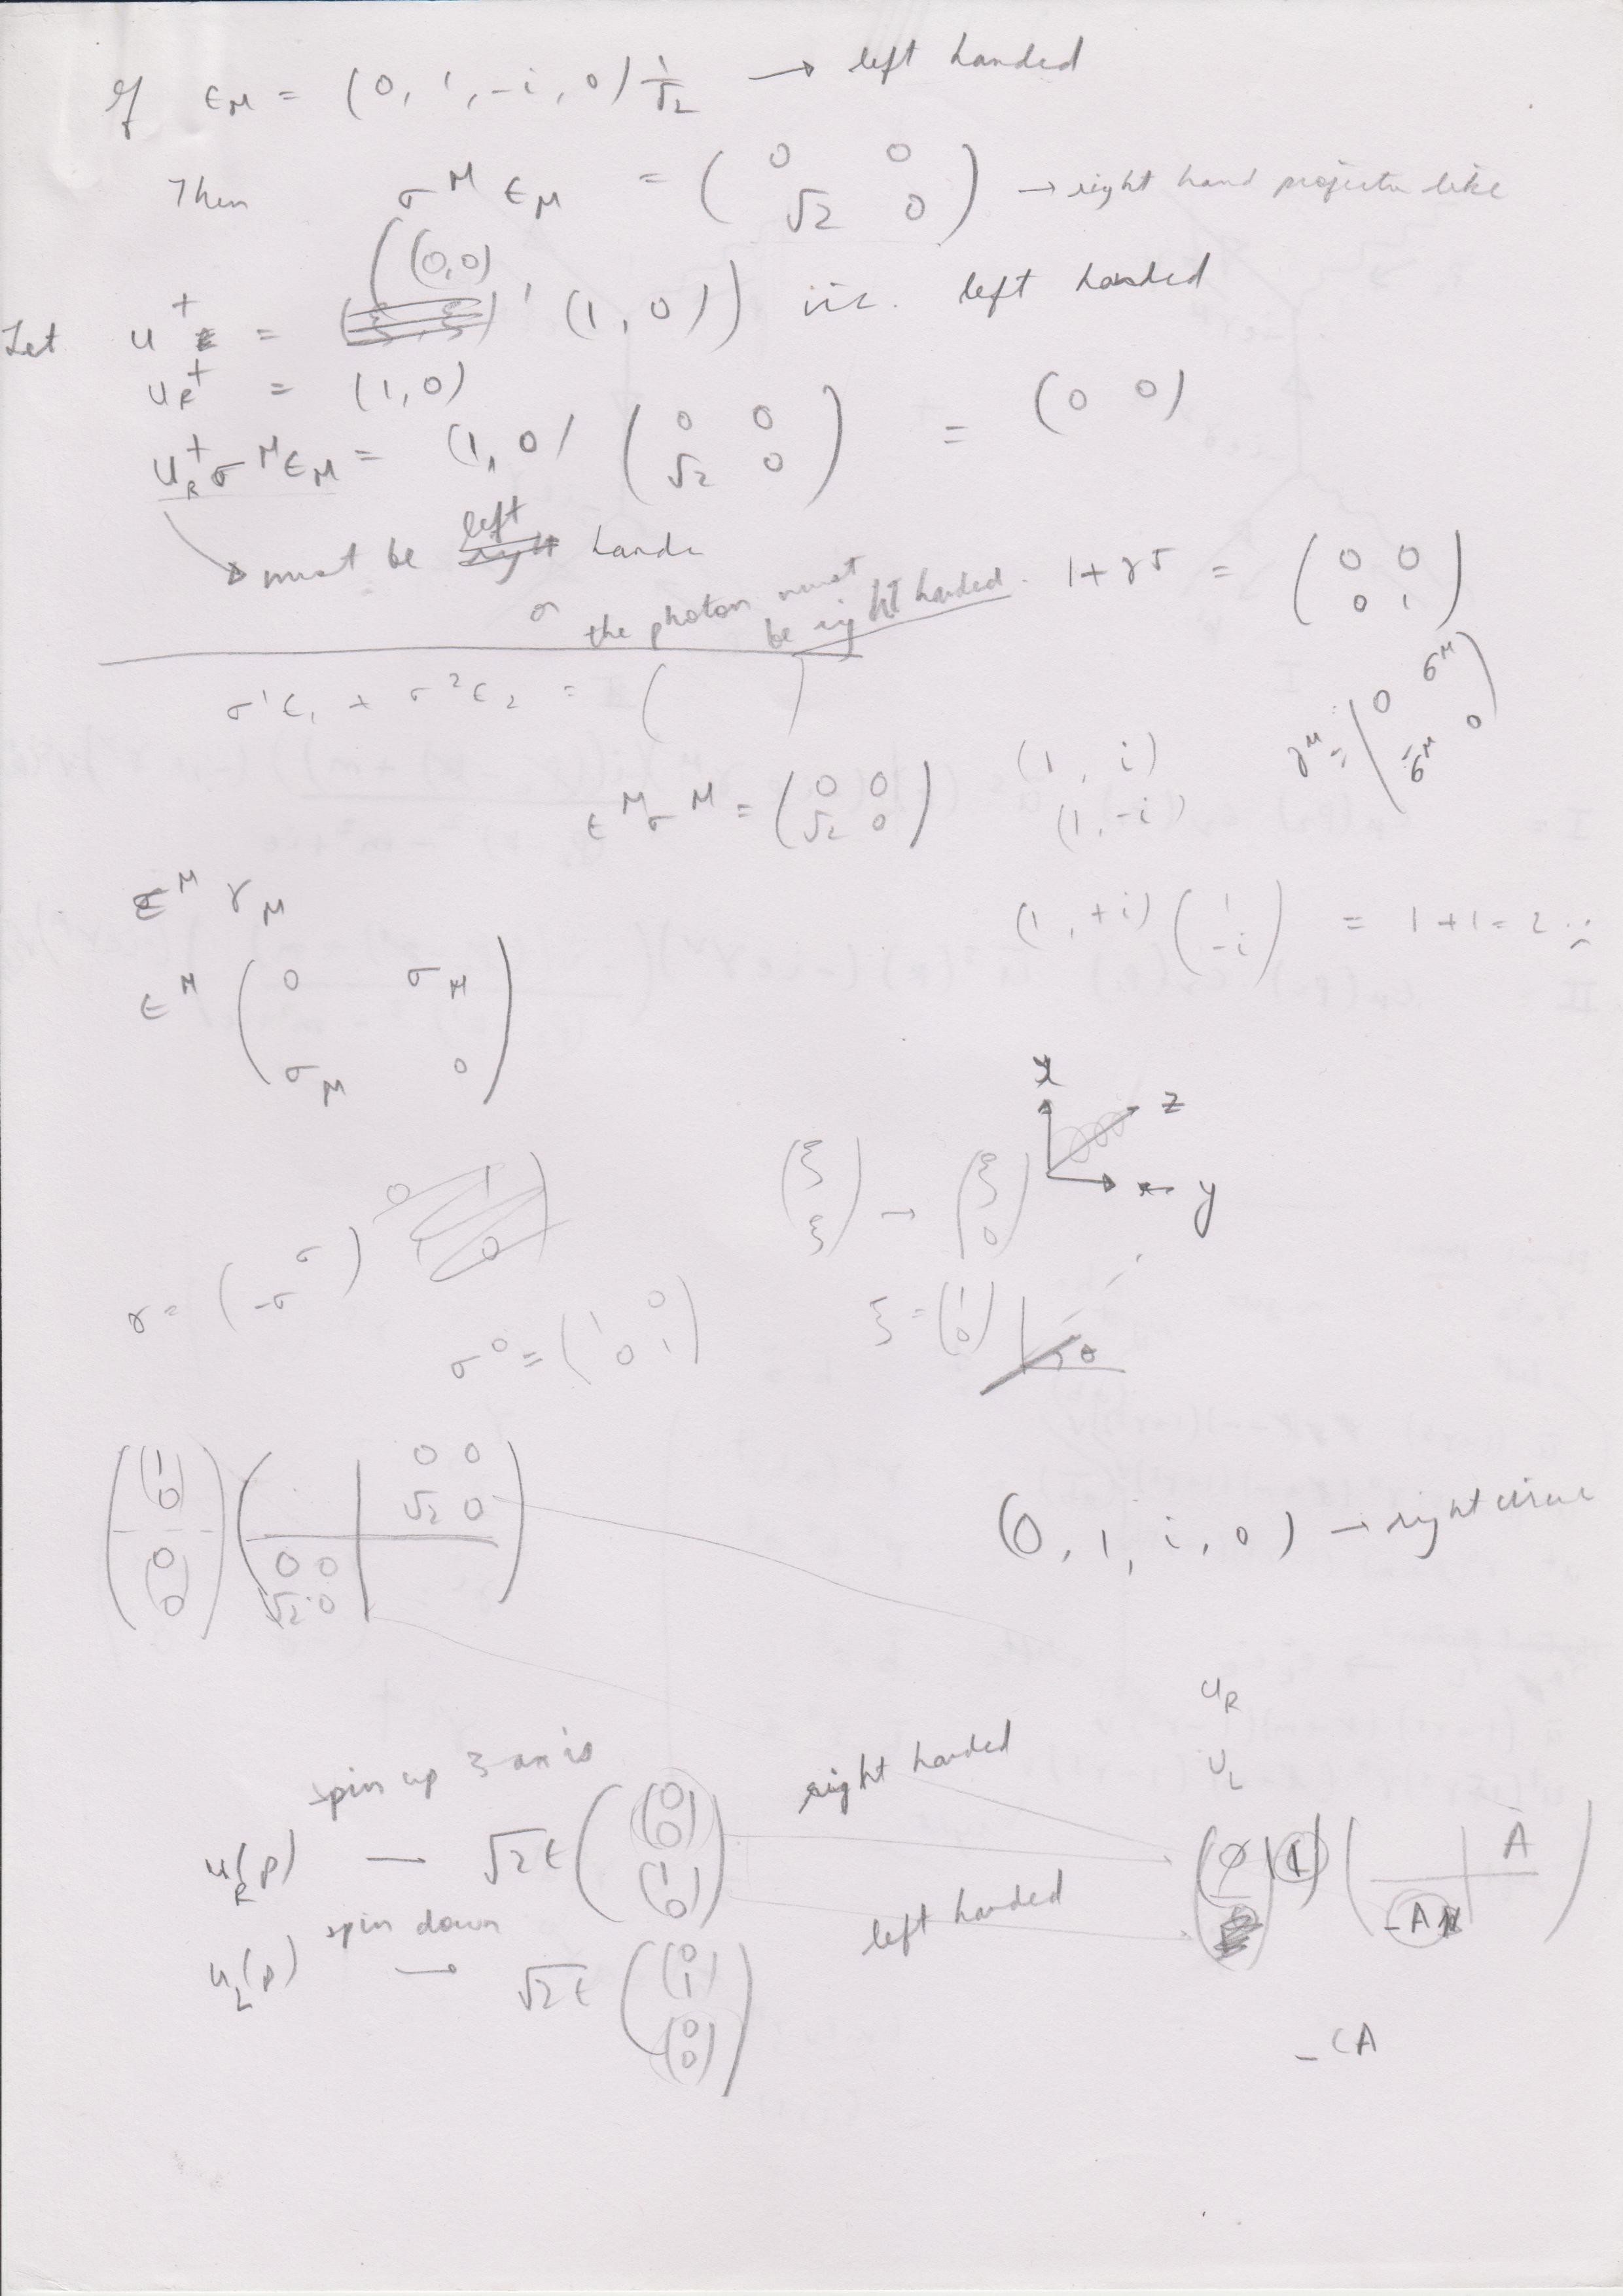 If ϵ_μ = (0, 1, -i, 0) 1/√2 → left handed
Then σ^μ ϵ_μ = ( 0 0 / √2 0 ) → right hand projector like
Let u^+ = ( (0,0) , (1,0) ) i.e. left handed
u_R^+ = (1,0)
u_R^+ σ^μ ϵ_μ = (1,0) ( 0 0 / √2 0 ) = (0 0)
must be left hande
or the photon must be right handed.
1+γ5 = ( 0 0 / 0 1 )
γ^μ = ( 0 σ^μ / σ̄^μ 0 )
σ^1 ϵ_1 + σ^2 ϵ_2 = ( )
ϵ^μ σ^μ = ( 0 0 / √2 0 )
(1, i)
(1, -i)
ϵ^μ γ_μ
(1, +i) ( 1 / -i ) = 1+1 = 2
ϵ^μ ( 0 σ_μ / σ_μ 0 )
x
z
y
( ξ / ξ ) → ( ξ / 0 )
γ = ( σ / -σ )
ξ = ( 1 / 0 )
θ
σ^0 = ( 1 0 / 0 1 )
( ( 1 / 0 ) / ( 0 / 0 ) ) ( 0 0 / √2 0 | 0 0 / √2 0 )
(0, 1, i, 0) →
u_R
u_L
spin up 3 axis
right handed
u_R(p) — √2E ( ( 0 / 0 ) / ( 1 / 0 ) )
spin down
left handed
u_L(p) → √2E ( ( 0 / 1 ) / ( 0 / 0 ) )
A
-A
-(A